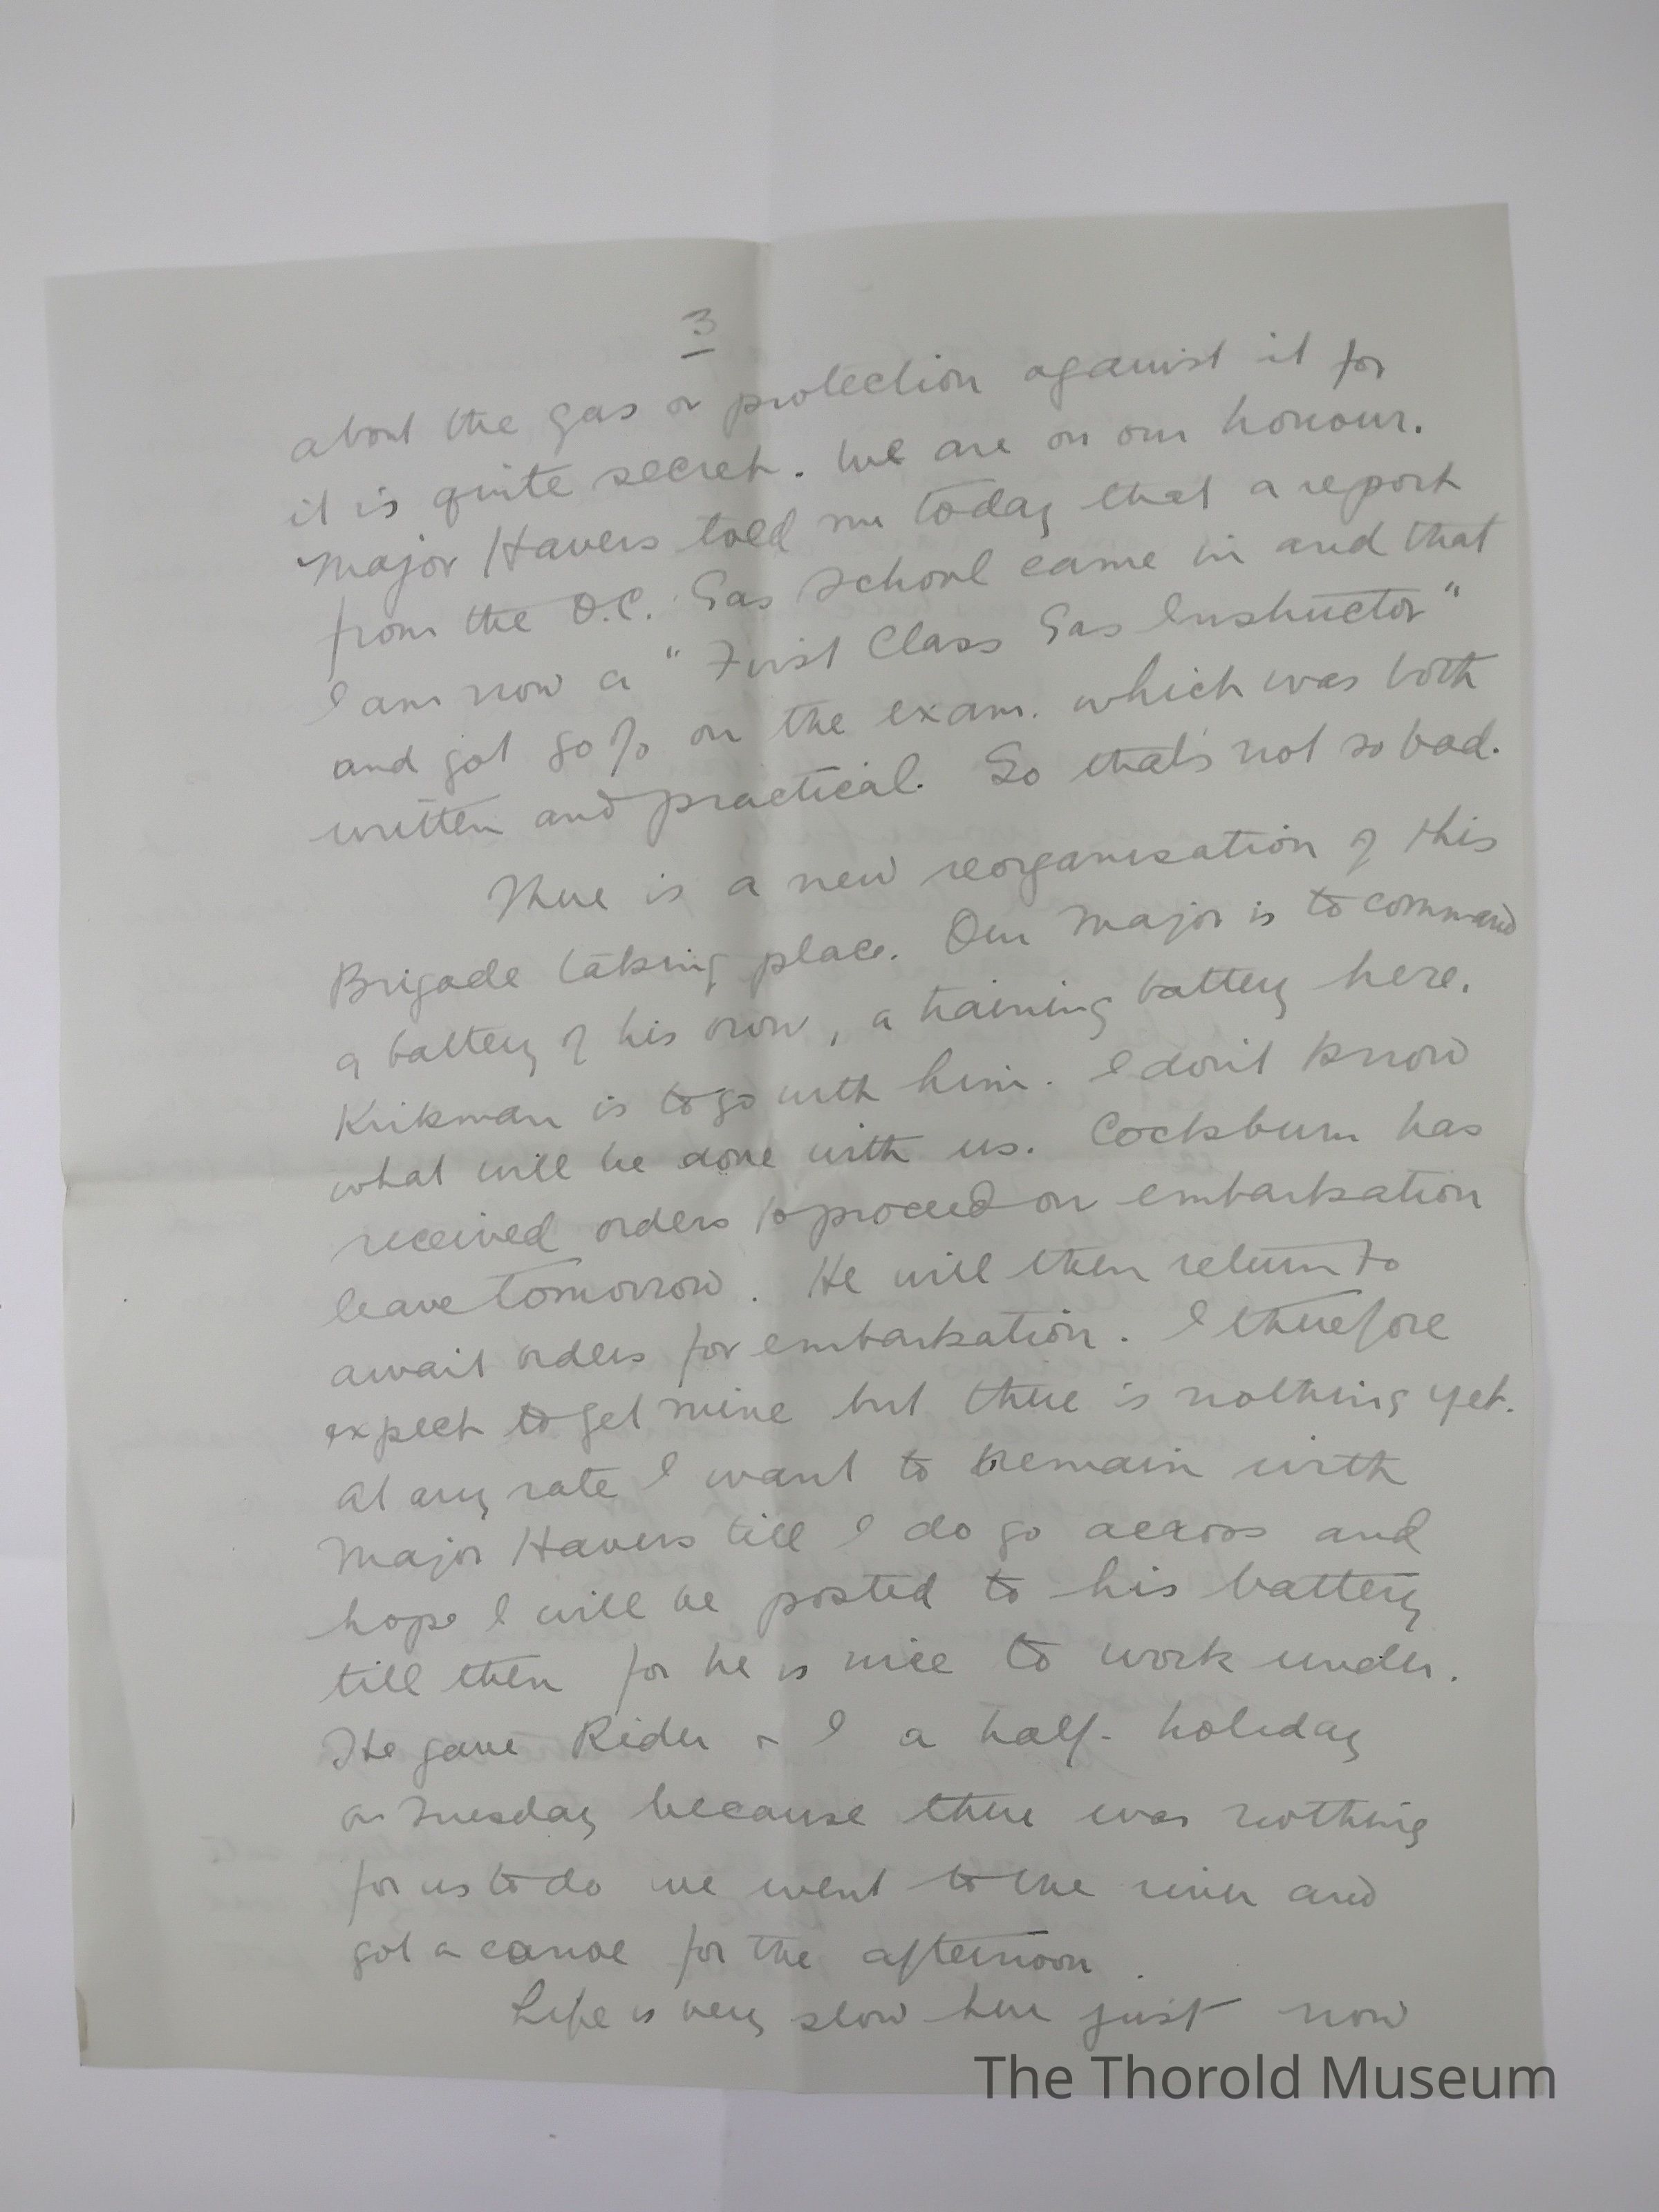 3
about the gas or protection against it for
it is quite secret. We are on our honour.
Major Havers told me today that a report
from the O.C. Gas School came in and that
I am now a "First Class Gas Instructor"
and got 80% on the exam. which was both
written and practical. So that's not so bad.
There is a new reorganisation of this
Brigade taking place. Our Major is to command
a battery of his own, a training battery here.
Kirkman is to go with him. I don't know
what will be done with us. Cockburn has
received orders to proceed on embarkation
leave tomorrow. He will then return to
await orders for embarkation. I therefore
expect to get mine but there is nothing yet.
At any rate I want to remain with
Major Havers till I do go across and
hope I will be posted to his battery
till then for he is nice to work under.
He gave Rider & I a half-holiday
on Tuesday because there was nothing
for us to do we went to the river and
got a canoe for the afternoon.
Life is very slow here just now
The Thorold Museum